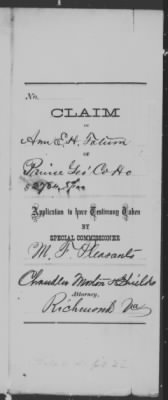 No.
CLAIM
OF
Ann E. H. Tatum
OF
Prince Geo Co
Application to have Testimony Taken
BY
SPECIAL COMMISSIONER
M. F. Pleasants
Chandler Morton & Shields
Attorney,
Richmond Va